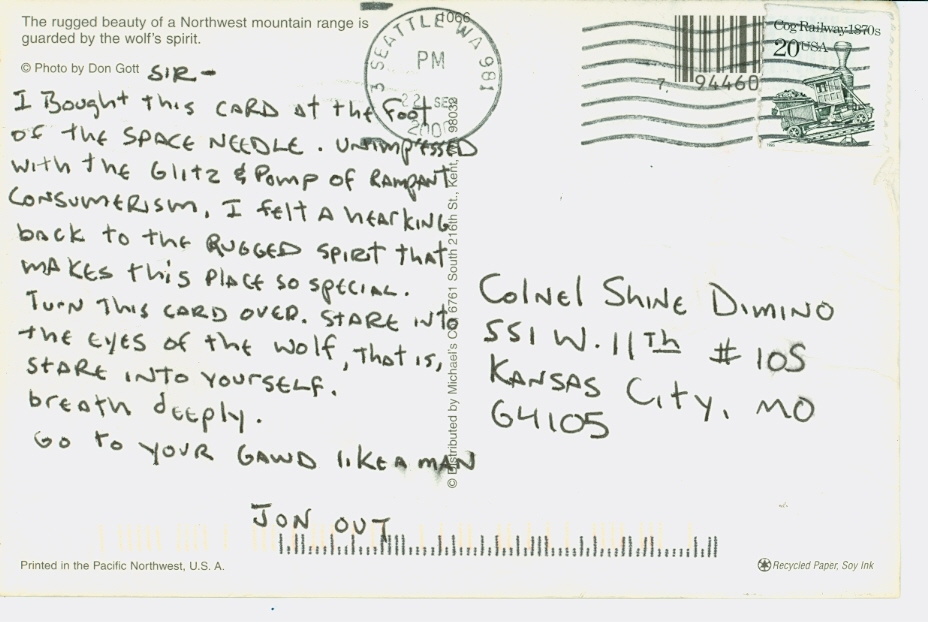 The rugged beauty of a Northwest mountain range is
guarded by the wolf's spirit.
© Photo by Don Gott
SIR -
I Bought this CARD at the Foot
OF the SPACE NEEDLE. UNIMPRESSED
with the Glitz & Pomp OF RAMPANT
CONSUMERISM, I felt A hearKING
back to the RUGGED SPIRIT that
MAKES this PLACE SO SPECIAL.
TURN THIS CARD OVER. STARE INTO
the EYES OF the WOLF, THAT IS,
STARE INTO YOURSELF.
breath deeply.
GO to YOUR GAWD LIKE A MAN
JON OUT
Printed in the Pacific Northwest, U. S. A.
SEATTLE WA 981
PM
22 SEP
© Distributed by Michael's Co. 6761 South 216th St., Kent, 98032
7. 94460
Cog Railway 1870s
20 USA
Colnel Shine Dimino
551 W. 11th #105
KANSAS City, MO
64105
Recycled Paper, Soy Ink